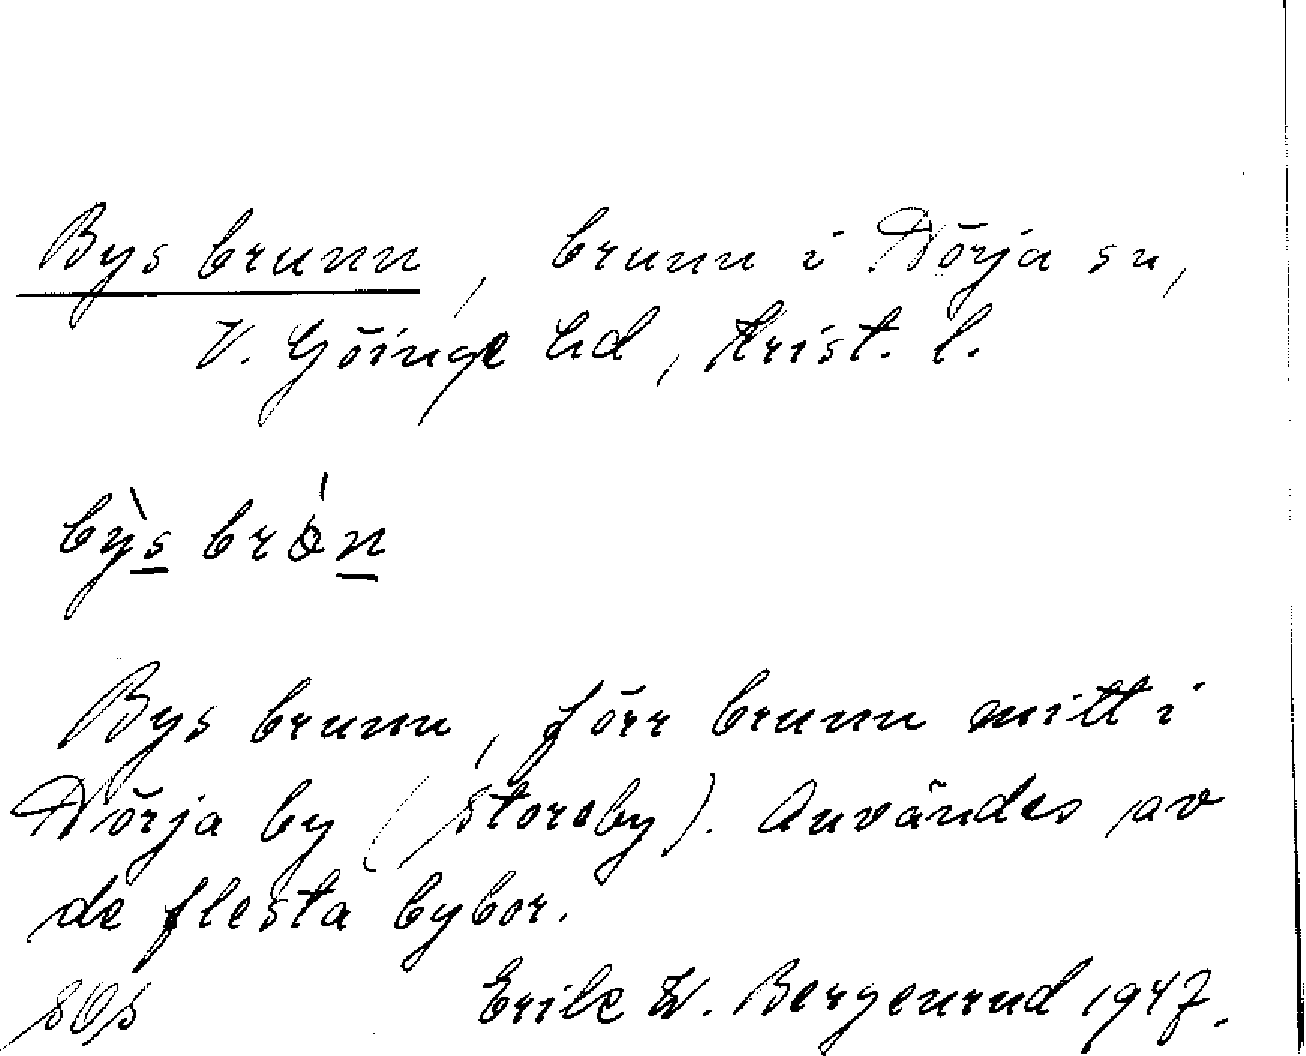 Bys brunn, brunn i Nörja sn,
V. Göinge hd, Krist. l.
bỳs brón
Bys brunn, förr brunn mitt i
Nörja by (Storeby). Användes av
de flesta bybor.
SOS Erik W. Bergenrud 1947.